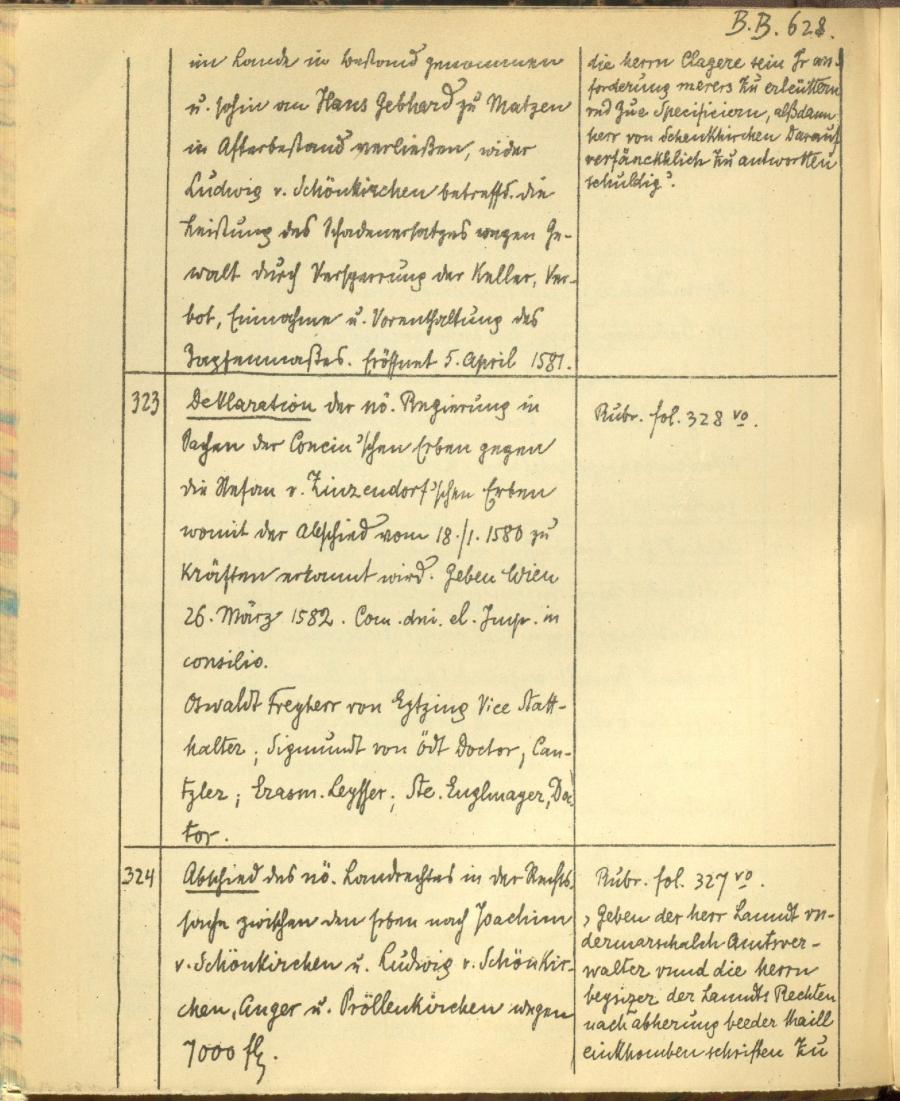 B.B. 628.
im Lande in Bestand genommen
u. sohin an Hans Gebhard zu Matzen
in Afterbestand verließen, wider
Ludwig v. Schönkirchen betreffd. die
Leistung des Schadenersatzes wegen Ge-
walt durch Versperrung der Keller, Ver-
bot, Einnahme u. Vorenthaltung des
Zapfenmaßes. Eröffnet 5. April 1581.
die herrn Clagere sein Ir an-
forderung merers zu erleüttern
vnd zue Specificiern, alßdann
herr von Schenkhirchen darauf
verfänckhlich zu antwortten
schuldig.
323
Deklaration der nö. Regierung in
Sachen der Concin'schen Erben gegen
die Stefan v. Zinzendorf'schen Erben
womit der Abschied vom 18./1. 1580 zu
Kräften erkannt wird. Geben Wien
26. März 1582. Com. dni. el. Imp. in
consilio.
Oswaldt Freyherr von Eytzing Vice Statt-
halter; Sigmundt von Ödt Doctor, Can-
tzler; Erasm. Leysser; Ste. Englmayer, Doc
tor.
Rubr. fol. 328 vo.
324
Abschied des nö. Landrechtes in der Rechts-
sache zwischen den Erben nach Joachim
v. Schönkirchen u. Ludwig v. Schönkir-
chen, Anger u. Pröllenkirchen wegen
7000 fl.
Rubr. fol. 327 vo.
, Geben der herr Lanndt vn-
dermarschalch Amtsver-
walter vnnd die herrn
beysizer der Lanndts Rechten
nach abherung beeder thaill
einkhomben schriften zu